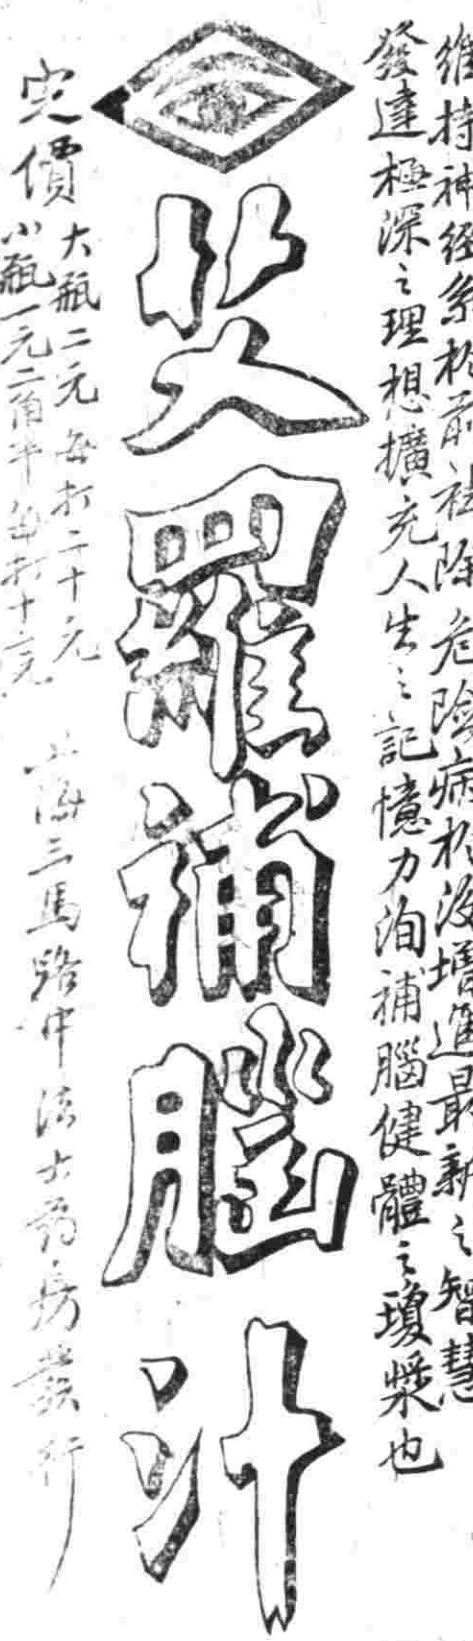 維持神經系於前祛除危險病於後增進最新之智慧
發達極深之理想擴充人生之記憶力洵補腦健體之瓊漿也
艾羅補腦汁
定價
大瓶二元 每打二十元
小瓶一元二角半 每打十二元
上海三馬路中法大药房發行